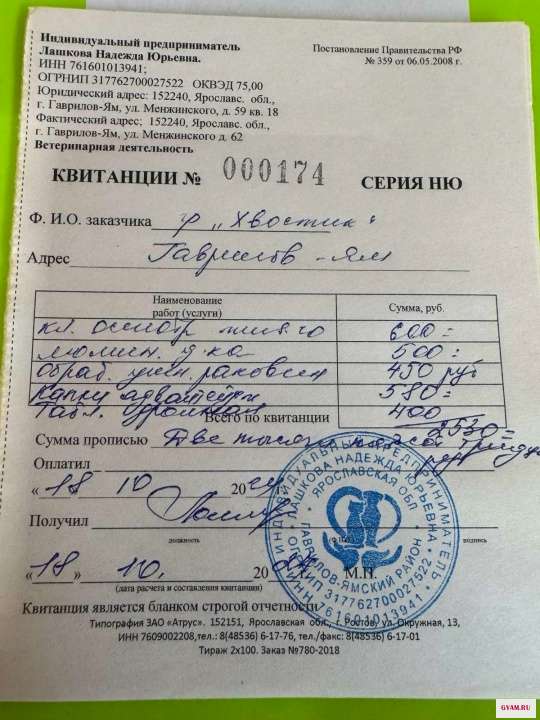 Индивидуальный предприниматель
Лашкова Надежда Юрьевна.
ИНН 761601013941;
ОГРНИП 317762700027522 ОКВЭД 75,00
Юридический адрес: 152240, Ярославс. обл.,
г. Гаврилов-Ям, ул. Менжинского, д. 59 кв. 18
Фактический адрес; 152240, Ярославс. обл.,
г. Гаврилов-Ям, ул. Менжинского д. 62
Ветеринарная деятельность
Постановление Правительства РФ
№ 359 от 06.05.2008 г.
КВИТАНЦИИ № 000174 СЕРИЯ НЮ
Ф. И.О. заказчика гр „Хвостик“
Адрес Гаврилов-Ям
Наименование работ (услуги) Сумма, руб.
кл. осмотр 600=
люмин. 500=
обраб. ушн. раковин 450 руб
Капли адвантейдж 580=
Табл. 400
Всего по квитанции 2530=
Сумма прописью Две тысячи пятьсот тридцать
Оплатил
„18 10 2024
Получил
должность подпись
„18 » 10. 2024 М.П.
(дата расчета и составления квитанции)
Квитанция является бланком строгой отчетности
Типография ЗАО «Атрус». 152151, Ярославская обл., г. Ростов, ул. Окружная, 13,
ИНН 7609002208,тел.: 8(48536) 6-17-76, тел./факс: 8(48536) 6-17-01
Тираж 2х100. Заказ №780-2018
ИНДИВИДУАЛЬНЫЙ ПРЕДПРИНИМАТЕЛЬ
ЛАШКОВА НАДЕЖДА ЮРЬЕВНА
ЯРОСЛАВСКАЯ ОБЛ
ГАВРИЛОВ-ЯМСКИЙ РАЙОН
ОГРНИП 317762700027522
ИНН 761601013941
GYAM.RU